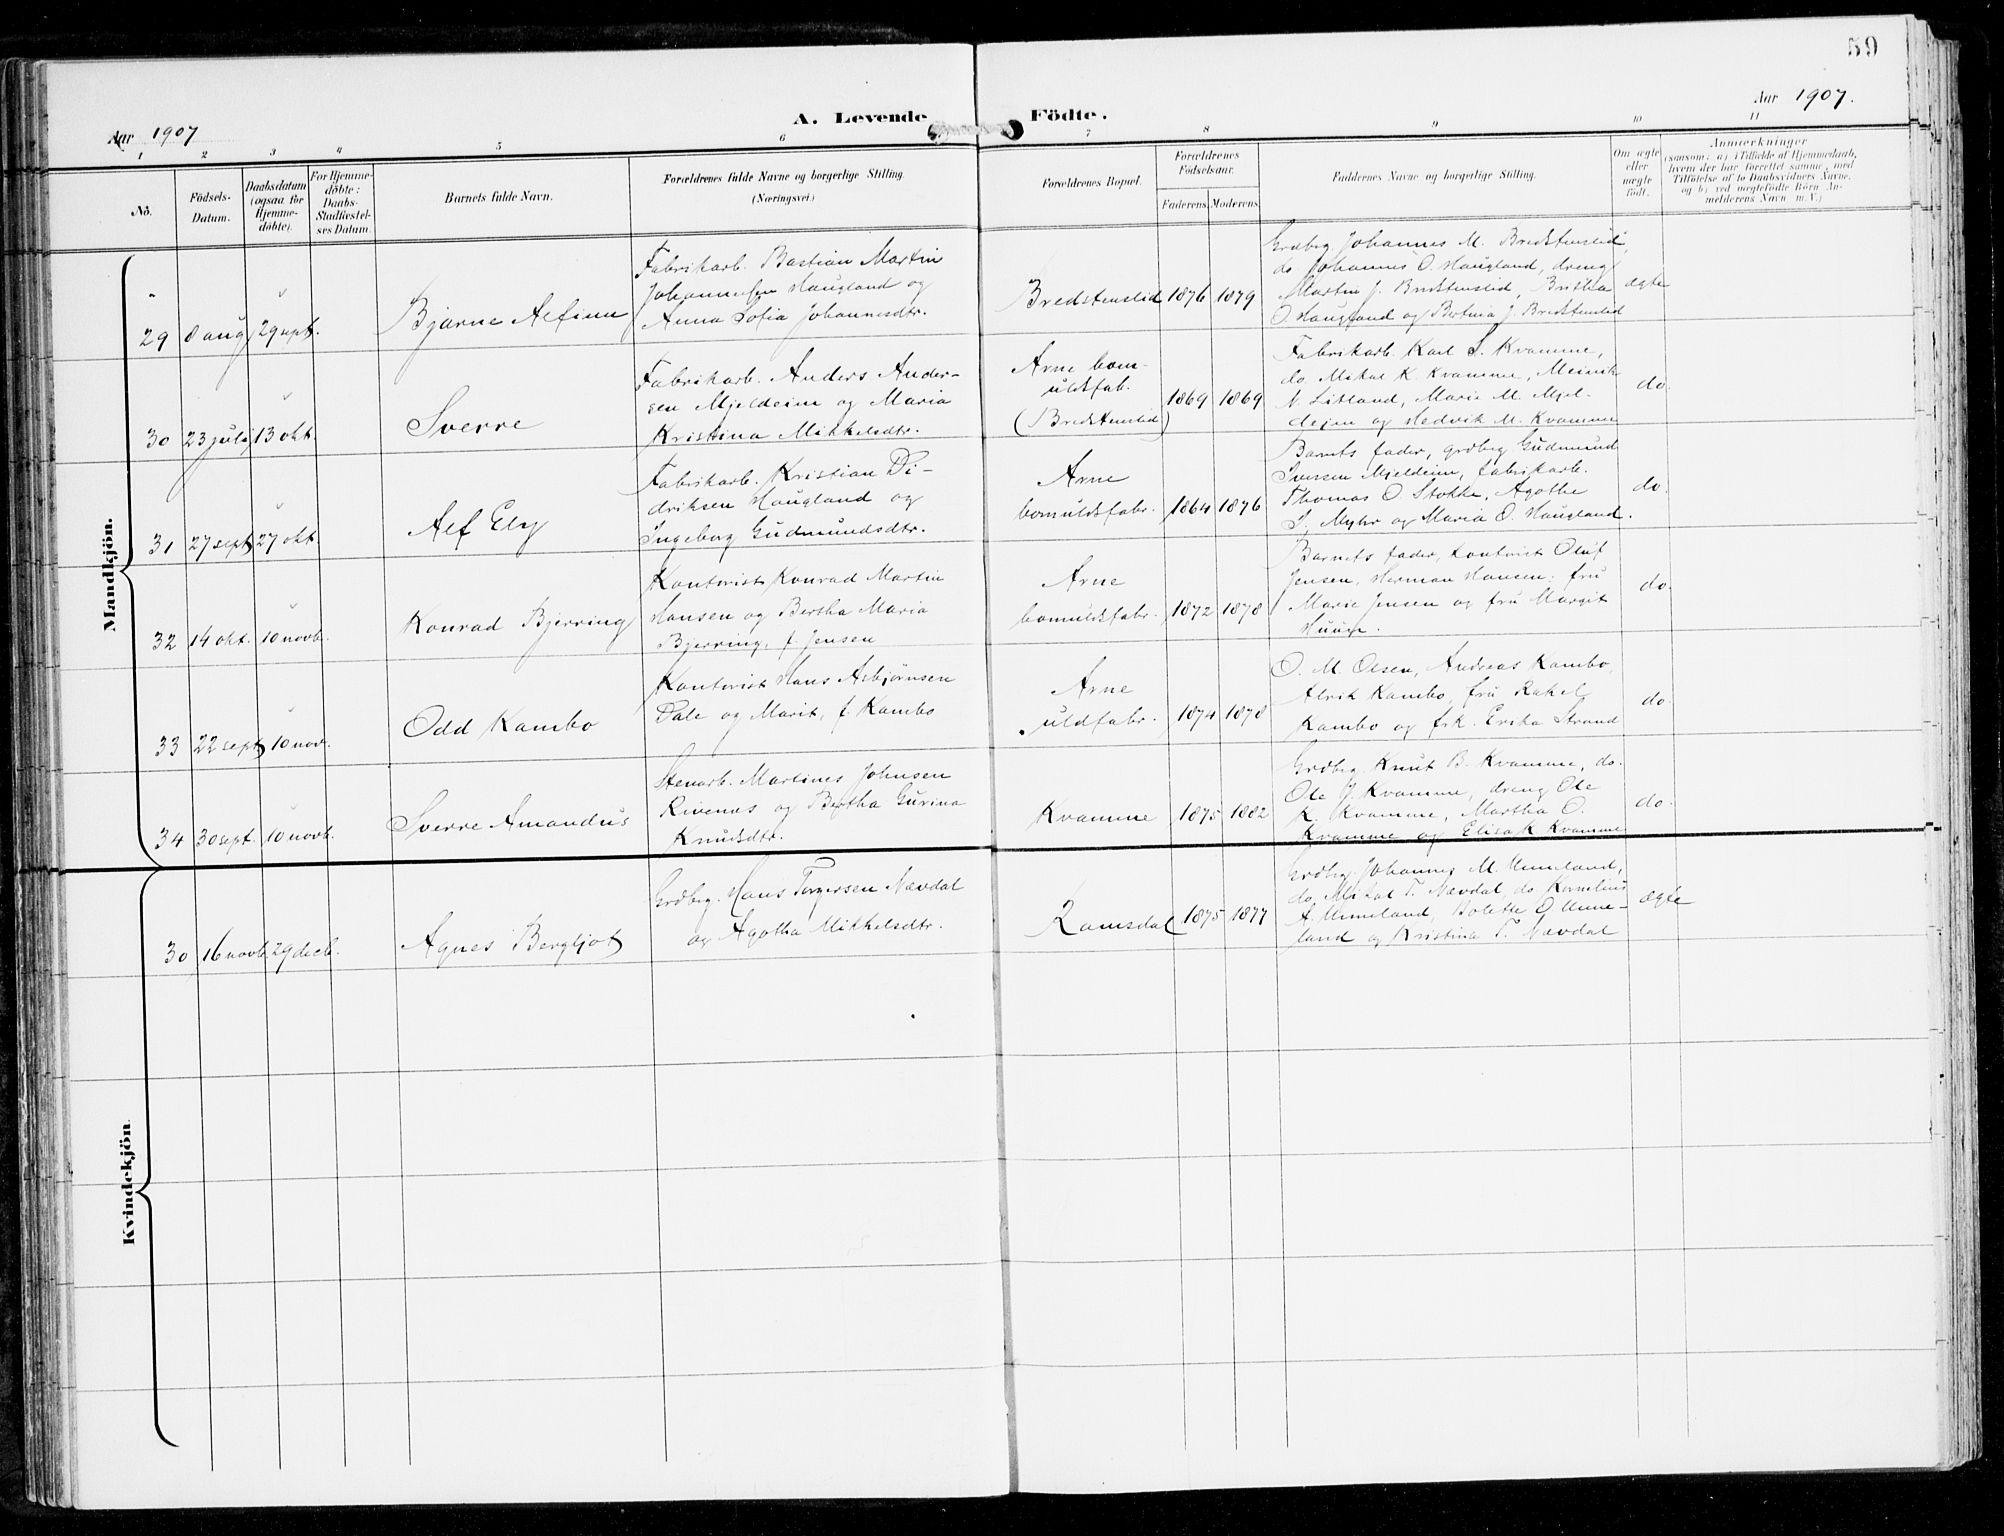 59
Aar 1907
A. Levende Födte.
Aar 1907.
1 2 3 4 5 6 7 8 9 10 11
No.
Födsels-
Datum.
Daabsdatum
(ogsaa for
Hjemme-
döbte).
For Hjemme-
döbte:
Daabs-
Stadfæstel-
ses Datum.
Barnets fulde Navn.
Forældrenes fulde Navne og borgerlige Stilling.
(Næringsvei.)
Forældrenes Bopæl.
Forældrenes
Födselsaar.
Faderens. Moderens.
Faddernes Navne og borgerlige Stilling.
Om ægte
eller
uægte
født.
Anmærkninger
(saasom: a) i Tilfælde af Hjemmedaab,
hvem der har forrettet samme, med
Tilföielse af to Daabsvidners Navne,
og b) ved uægtefödte Börn An-
melderens Navn m. V.)
Mandkjön.
29 8 aug 29 sept.
Bjarne Alfinn
Fabrikarb. Bastian Martin
Johannesen Haugland og
Anna Sofia Johannesdtr.
Bredstenslid
1876 1879
Grdbrg. Johannes M. Bredstenslid,
do Johannes O. Haugland, dreng
Martin J. Bredstenslid, Britha
O. Haugland og Bertina J. Bredstenslid
ægte
30 23 juli 13 okt.
Sverre
Fabrikarb. Anders Ander-
sen Mjeldeim og Maria
Kristina Mikkelsdtr.
Arne bom-
uldsfab.
(Bredstenslid)
1869 1869
Fabrikarb. Karl S. Kvamme,
do. Mikal K. Kvamme, Meinik
N Lilland, Marie M. Mjel-
deim og Hedvik M. Kvamme
do.
31 27 sept 27 okt.
Alf Ely
Fabrikarb. Kristian Di-
driksen Haugland og
Ingeborg Gudmundsdtr.
Arne
bomuldsfabr.
1864 1876
Barnets fader, grdbrg Gudmund
Iversen Mjeldeim, fabrikarb.
Thomas O. Stokke, Agothe
S. Myhr og Maria O. Haugland.
do.
32 14 okt. 10 novb.
Konrad Bjerring
Kontorist Konrad Martin
Hansen og Bertha Maria
Bjerring, f. Jensen
Arne
bomuldsfabr.
1872 1878
Barnets fader, kontorist Oluf
Jensen, Herman Hansen: fru
Marie Jensen og fru Margit
do.
33 22 sept 10 nov.
Odd Kambo
Kontorist Hans Asbjørnsen
Dale og Marit, f. Kambo
Arne
uldfabr.
1874 1878
O. M. Olsen, Andreas Kambo,
Alrik Kambo, fru Rakel
Kambo og frk. Erika Strand
do.
34 30 sept. 10 novb.
Sverre Amandus
Stenarb. Martines Johnsen
Rivenes og Bertha Gurina
Knudsdtr.
Kvamme
1875 1882
Grdbrg. Knut B. Kvamme, do.
Ole J. Kvamme, dreng Ole
K. Kvamme, Martha O.
Kvamme og Elisa K Kvamme
do.
Kvindekjön.
30 16 novb 29 decb.
Agnes Bergljot
Grdbrg. Hans Torgersen Nævdal
og Agotha Mikkelsdtr.
Ramsdal
1875 1877
Grdbrg. Johannes M. Unneland,
do. Mikal T. Nævdal do Kornelius
A. Unneland, Bolette O Unne-
land og Kristina T. Nævdal
ægte